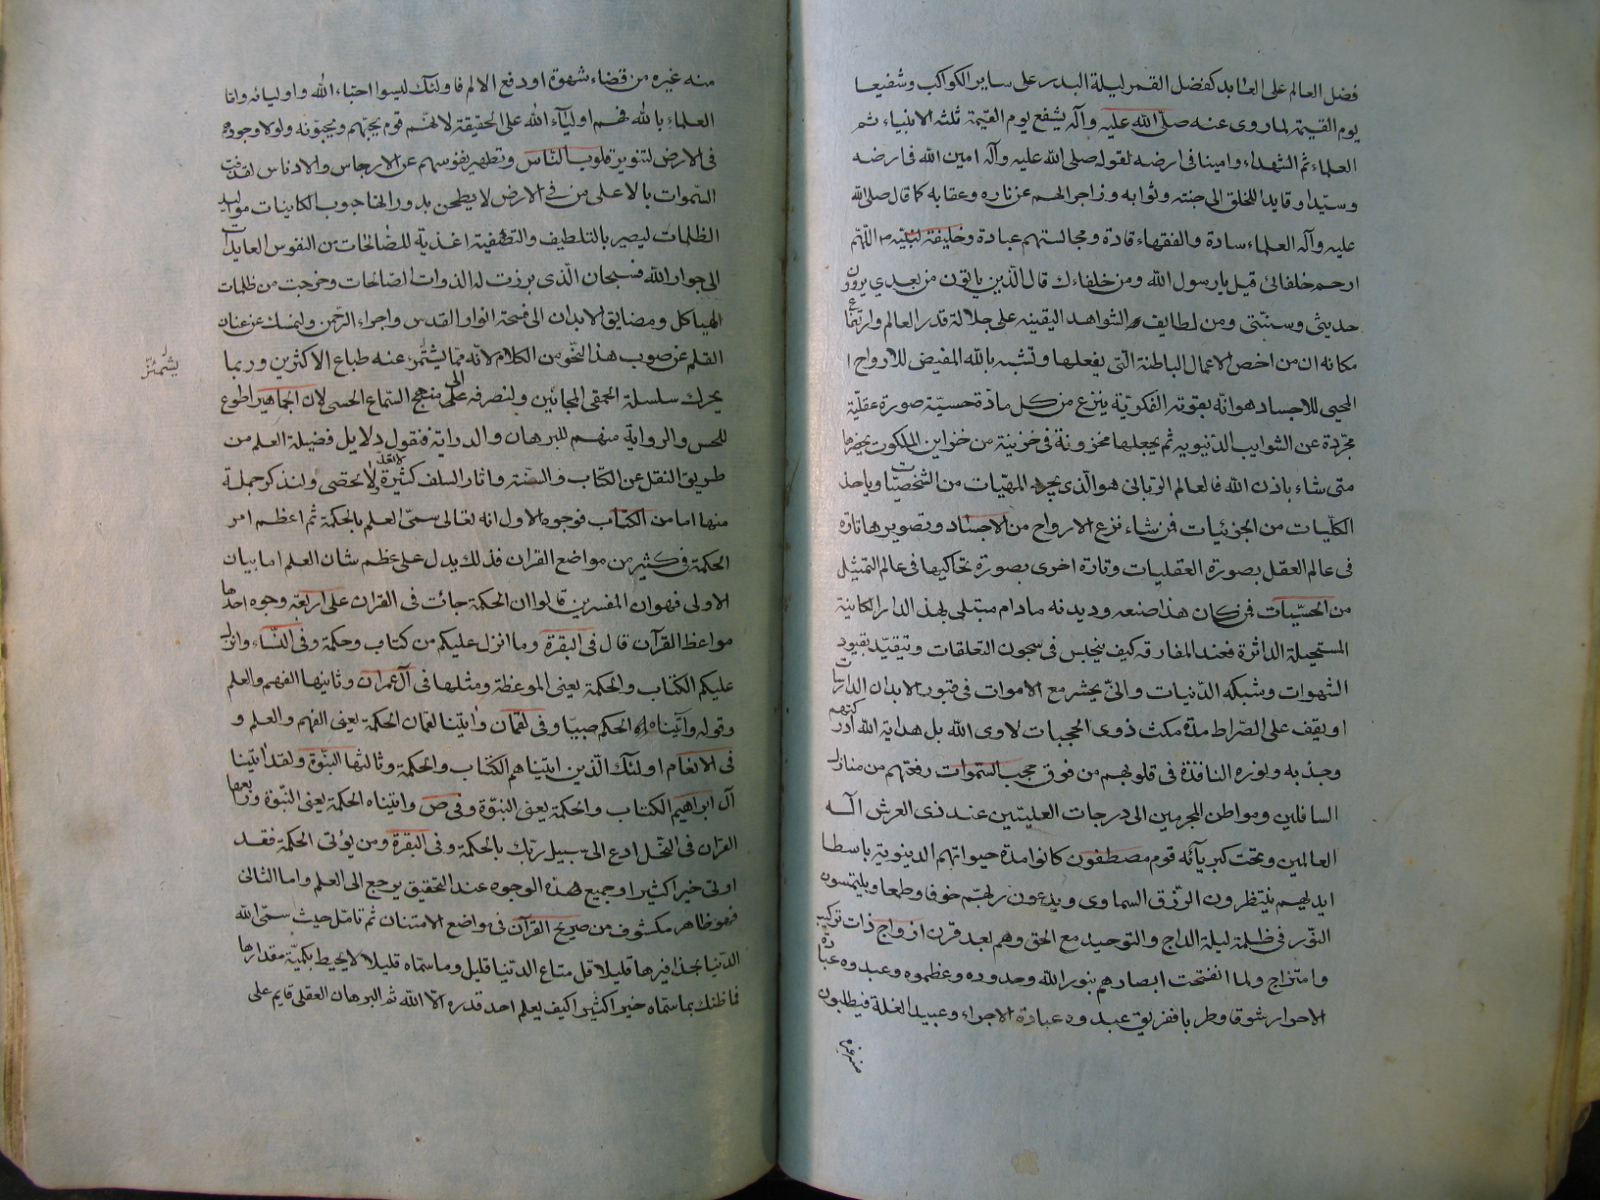 فضل العالم على العابد كفضل القمر ليلة البدر على ساير الكواكب وشفيعا
يوم القيمة لما روى عنه صلى الله عليه وآله يشفع يوم القيمة ثلثه الانبياء ثم
العلماء ثم الشهداء وامينا فى ارضه لقوله صلى الله عليه وآله امين الله فى ارضه
وسيدا وقايدا للخلق الى جنته وثوابه وزاجرا لهم عن ناره وعقابه كما قال صلى الله
عليه وآله العلماء سادة والفقهاء قادة ومجالستهم عبادة وخليفة لنبيه اللهم
ارحم خلفائى قيل يا رسول الله ومن خلفاءك قال الذين ياتون من بعدي يروون
حديثى وسنتى ومن لطايف الشواهد اليقينه على جلالة قدر العالم وارتفاع
مكانه ان من اخص الاعمال الباطنة التى يفعلها وتشبه بالله المفيض للارواح
المحيى للاجساد هو انه بقوته الفكرية ينزع من كل مادة حسية صورة عقلية
مجردة عن الشوايب الدنيويه ثم يجعلها مخزونة فى خزينة من خزاين الملكوت يحضرها
متى شاء باذن الله فالعالم الربانى هو الذى يجرد المهيات من الشخصيات وياخذ
الكليات من الجزئيات فمن شاء نزع الارواح من الاجساد وتصويرها تارة
فى عالم العقل بصورة العقليات وتارة اخرى بصورة تحاكيها فى عالم التمثيل
من الحسيات فمن كان هذا صنعه وديدنه مادام مبتلى بهذا الدار الكاينة
المستحيلة الداثرة فعند المفارقه كيف ينحبس فى سجون التعلقات وتيقيد بقيود
الشهوات وشبكه الدنيات وانى يحشر مع الاموات فى قبور الابدان الدارسات
او يقف على الصراط مدة مكث ذوى الحجبات لاوى الله بل هداية الله ادركتهم
وجذبه ونوره النافذة فى قلوبهم من فوق حجب السموات رفعتهم من منازل
السافلين ومواطن المجرمين الى درجات العليين عند ذى العرش اله
العالمين وتحت كبريائه قوم مصطفون كانوا مدة حيواتهم الدينوية باسطا
ايديهم ينتظرون الرزق السماوى ويدعون ربهم خوفا وطمعا ويلتمسون
النور فى ظلمة ليلة الداج والتوحيد مع الحق وهم بعد قرن ازواج ذات تركيب
وامتزاج ولما انفتحت ابصارهم بنور الله وحدوده وعظموه وعبدوه عبادة
الاحرار شوقا وطربا ففريق عبدوه عبادة الاجراء وعبيد الغلة فيطلبون
منه غيره
منه غيره من قضاء شهوة او دفع الالم فاولئك ليسوا احباء الله واوليائه واما
العلماء بالله فهم اولياء الله على الحقيقة لانهم قوم يحبهم ويحبونه ولولا وجوده
فى الارض لتنوير قلوب الناس وتطهير نفوسهم عن الارجاس والادناس لقذفت
السموات بالاعلى من فى الارض لا يطحن بدورانها حبوب الكاينات مواليد
الظلمات ليصير بالتلطيف والتصفية اغذية للصالحات من النفوس العايدات
الى جوار الله فسبحان الذى برزت له الذوات الصالحات وخرجت من ظلمات
الهياكل ومضايق الابدان الى فسحة انوار القدس واجراء الرحمن ولنمسك عن عنان
القلم عن صوب هذا النحو من الكلام لانه مما يشمئز عنه طباع الاكثرين وربما
يشمئز
يحرك سلسلة الحمقى المجانين ولنصرفه الى منهج السماع الحسى لان الجماهير اطوع
للحس والرواية منهم للبرهان والدراية فنقول دلايل فضيلة العلم من
طريق النقل عن الكتاب والسنة واثار السلف كثيرة لا تعد ولا تحصى ولنذكر جملة
منها اما من الكتاب فوجوه الاول انه تعالى سمى العلم بالحكمة ثم اعظم امر
الحكمة فى كثير من مواضع القران فذلك يدل على عظم شان العلم اما بيان
الاولى فهو ان المفسرين قالوا ان الحكمة جائت فى القران على اربعة وجوه احدها
مواعظ القرآن قال فى البقرة وما انزل عليكم من كتاب وحكمة وفى النساء وانزل
عليكم الكتاب والحكمة يعنى الموعظة ومثلها فى آل عمران وثانيها الفهم والعلم
وقوله واتيناه الحكم صبيا وفى لقمان واتينا لقمان الحكمة يعنى الفهم والعلم و
فى الانعام اولئك الذين اتيناهم الكتاب والحكمة وثالثها النبوة ولقد اتينا
آل ابراهيم الكتاب والحكمة يعنى النبوة وفى ص واتيناه الحكمة يعنى النبوة ورابعها
القران فى النحل ادع الى سبيل ربك بالحكمة وفى البقرة ومن يؤتى الحكمة فقد
اوتى خيرا كثيرا وجميع هذه الوجوه عند التحقيق يرجع الى العلم واما الثانى
فهو ظاهر مكشوف من صريح القرآن فى مواضع الامتنان ثم تامل حيث سمى الله
الدنيا بحذافيرها قليلا قل متاع الدنيا قليل وما سماه قليلا لا يحيط بكمية مقدارها
فما ظنك بما سماه خيرا كثيرا كيف يعلم احد قدره الا الله ثم البرهان العقلى قايم على